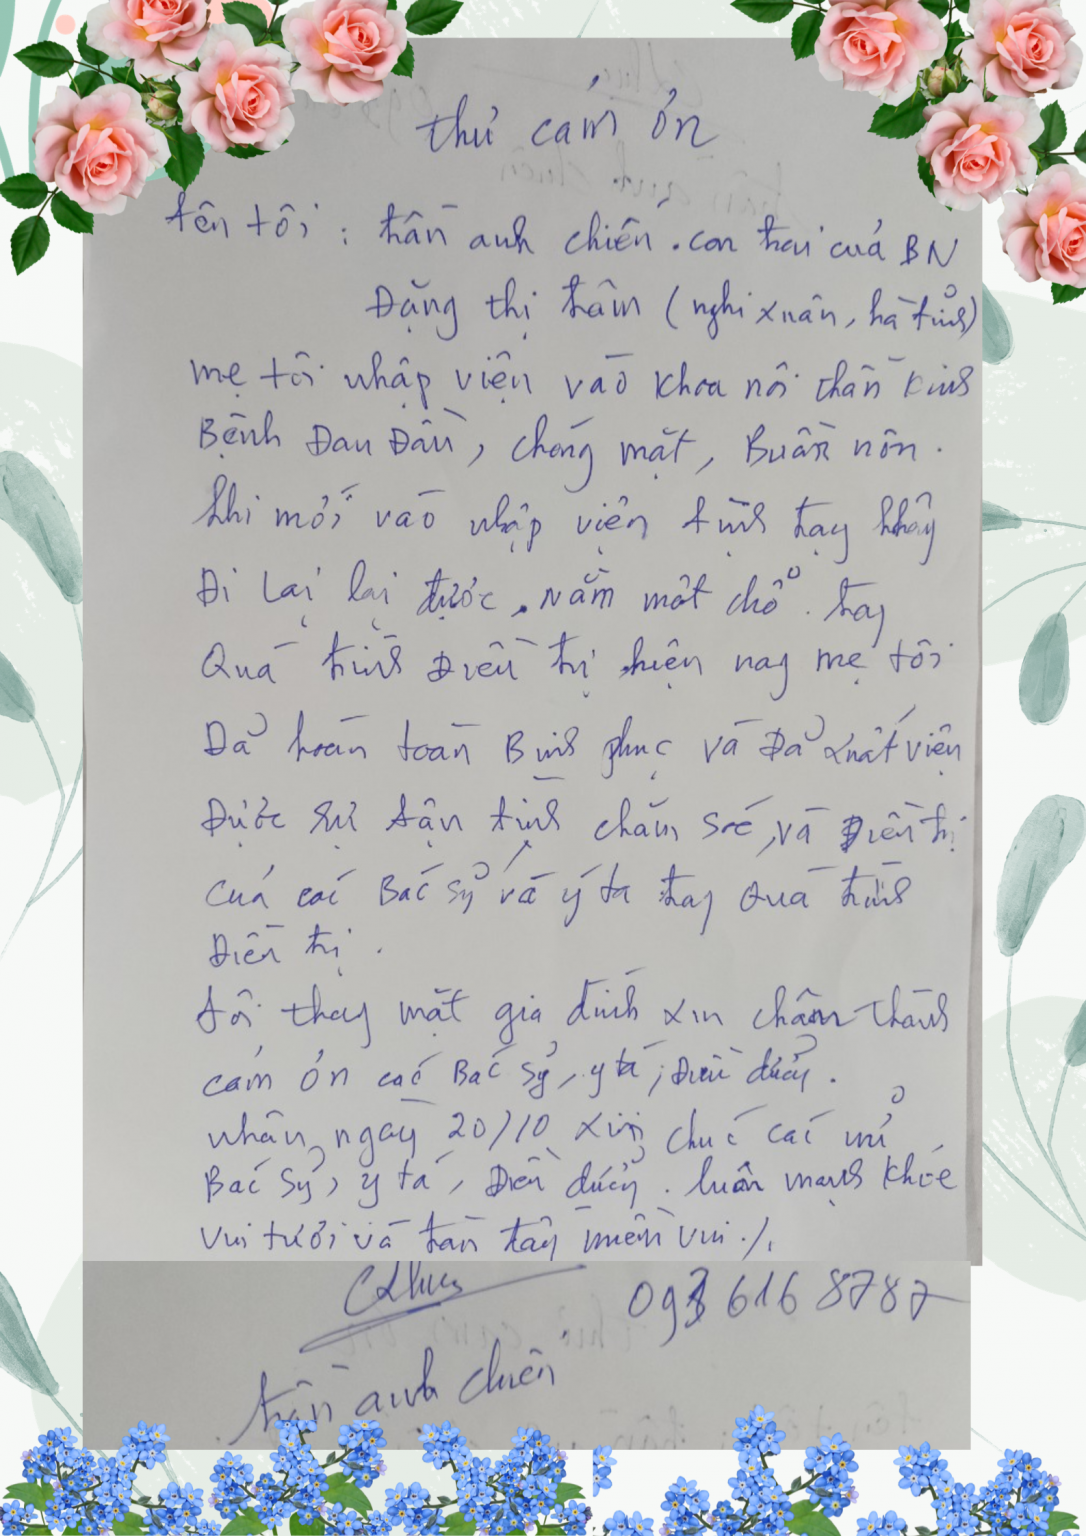 thư cảm ơn
tên tôi : trần anh chiến . con trai của BN
Đặng thị trâm (nghi xuân, hà tĩnh)
mẹ tôi nhập viện vào khoa nôi thần kinh
Bệnh Đau Đầu, chóng mặt, Buồn nôn.
khi mới vào nhập viện tay không
Đi lại lại được, nằm một chổ. tay
Quá trình Điều trị hiện nay mẹ tôi
Đả hoàn toàn Bình phục và Đả xuất viện
Được sự tận tình chăm sóc, và Điều trị
của các Bác sỷ và y tá quá trình
Điều trị.
tôi thay mặt gia đình xin chân thành
cảm ơn các Bác sỷ, y tá, Điều dưởng.
nhân ngày 20/10 xin chúc các nử
Bác sỷ, y tá, Điều dưởng. luôn mạnh khỏe
vui tươi và tràn đầy niềm vui ./.
093 616 8787
trần anh chiến